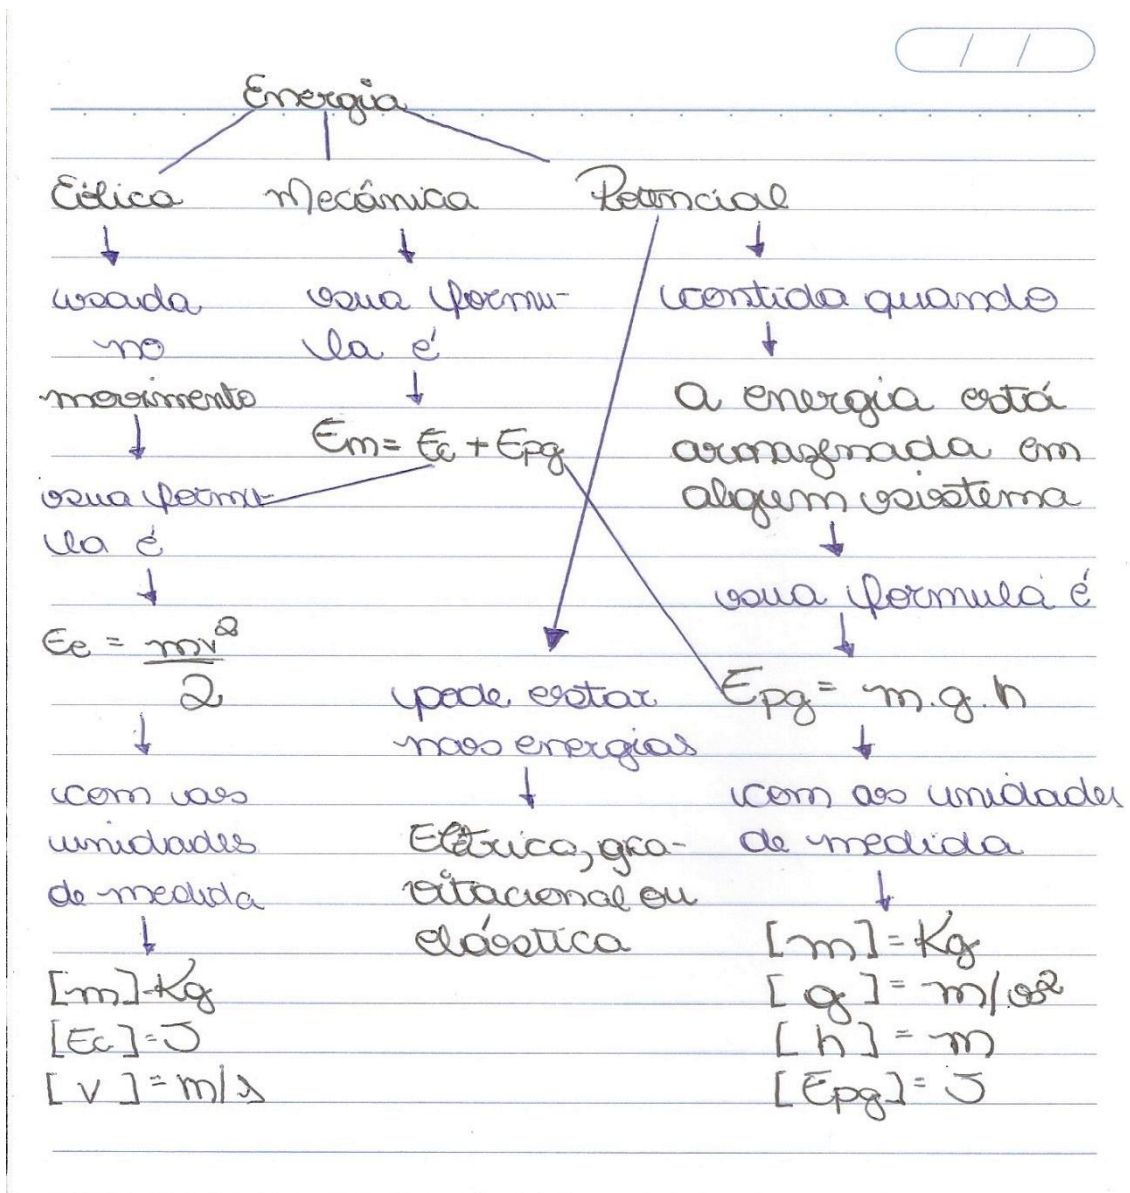 / /
Energia
Eólica Mecânica Potencial
usada
no
movimento
sua formu-
la é
Ec = mv²
2
com as
unidades
de medida
[m]=Kg
[Ec]=J
[V]=m/s
sua formu-
la é
Em= Ec + Epg
pode estar
nas energias
Elétrica, gra-
vitacional ou
elástica
contida quando
a energia está
armazenada em
algum sistema
sua formula é
Epg= m.g.h
com as unidades
de medida
[m]=Kg
[g]=m/s²
[h]=m
[Epg]=J